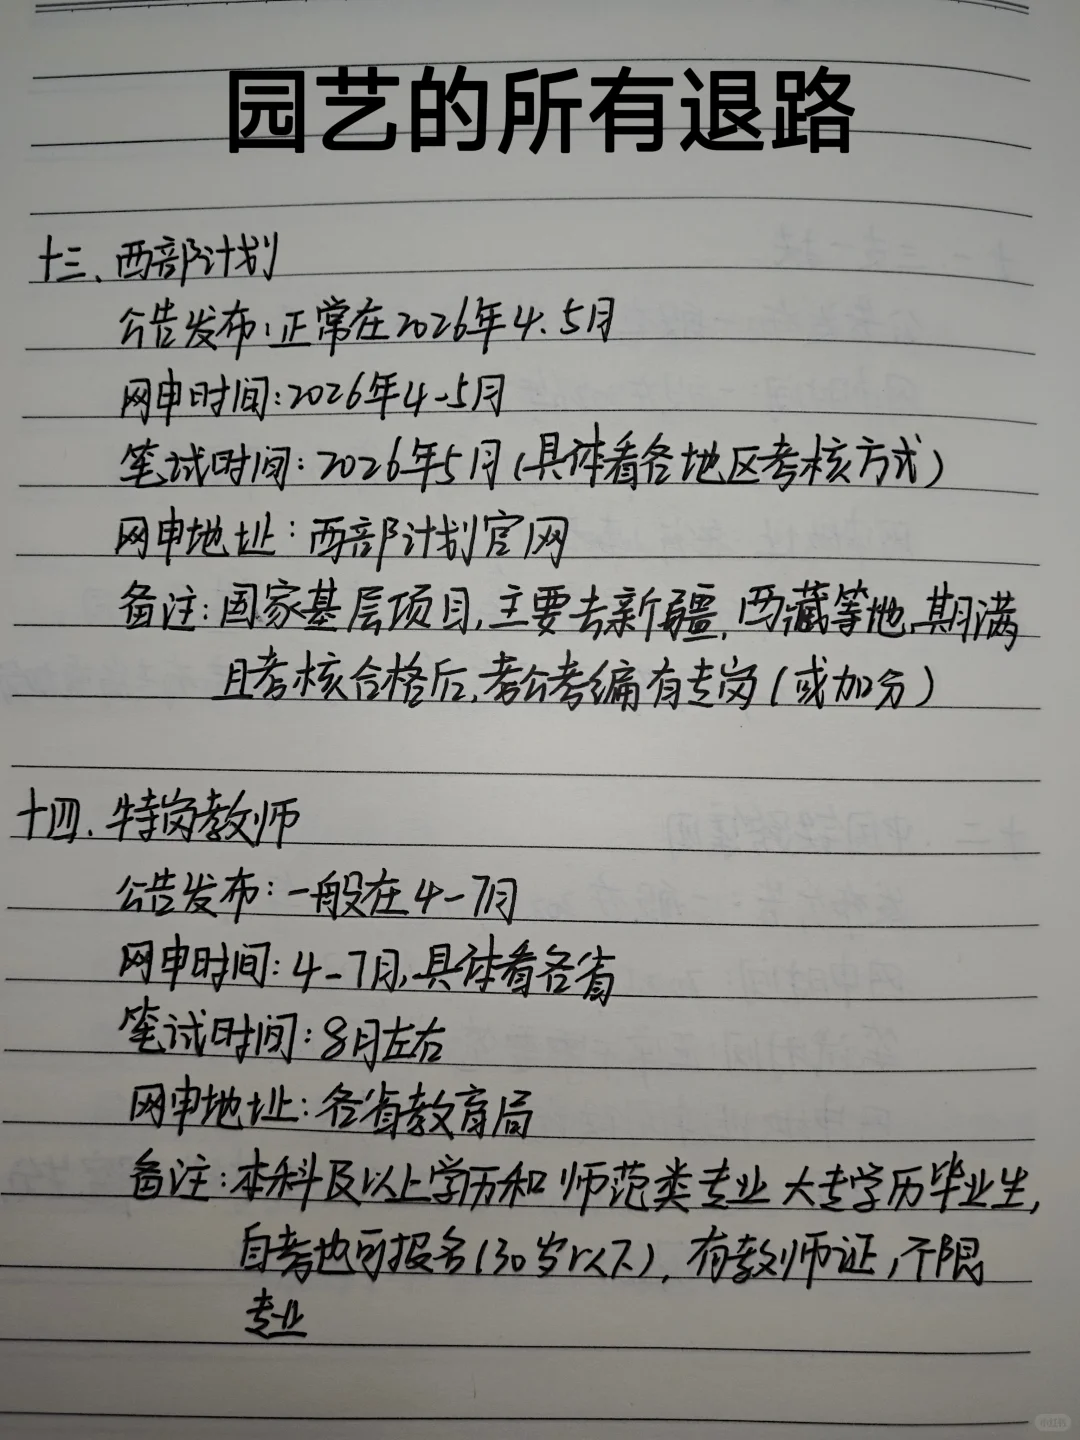 园艺的所有退路
十三、西部计划
公告发布:正常在2026年4.5月
网申时间:2026年4-5月
笔试时间:2026年5月(具体看各地区考核方式)
网申地址:西部计划官网
备注:国家基层项目,主要去新疆,西藏等地,期满
且考核合格后,考公考编有专岗(或加分)
十四.特岗教师
公告发布:一般在4-7月
网申时间:4-7月,具体看各省
笔试时间:8月左右
网申地址:各省教育局
备注:本科及以上学历和师范类专业大专学历毕业生,
自考也可报名(30岁以下),有教师证,不限
专业
小红书